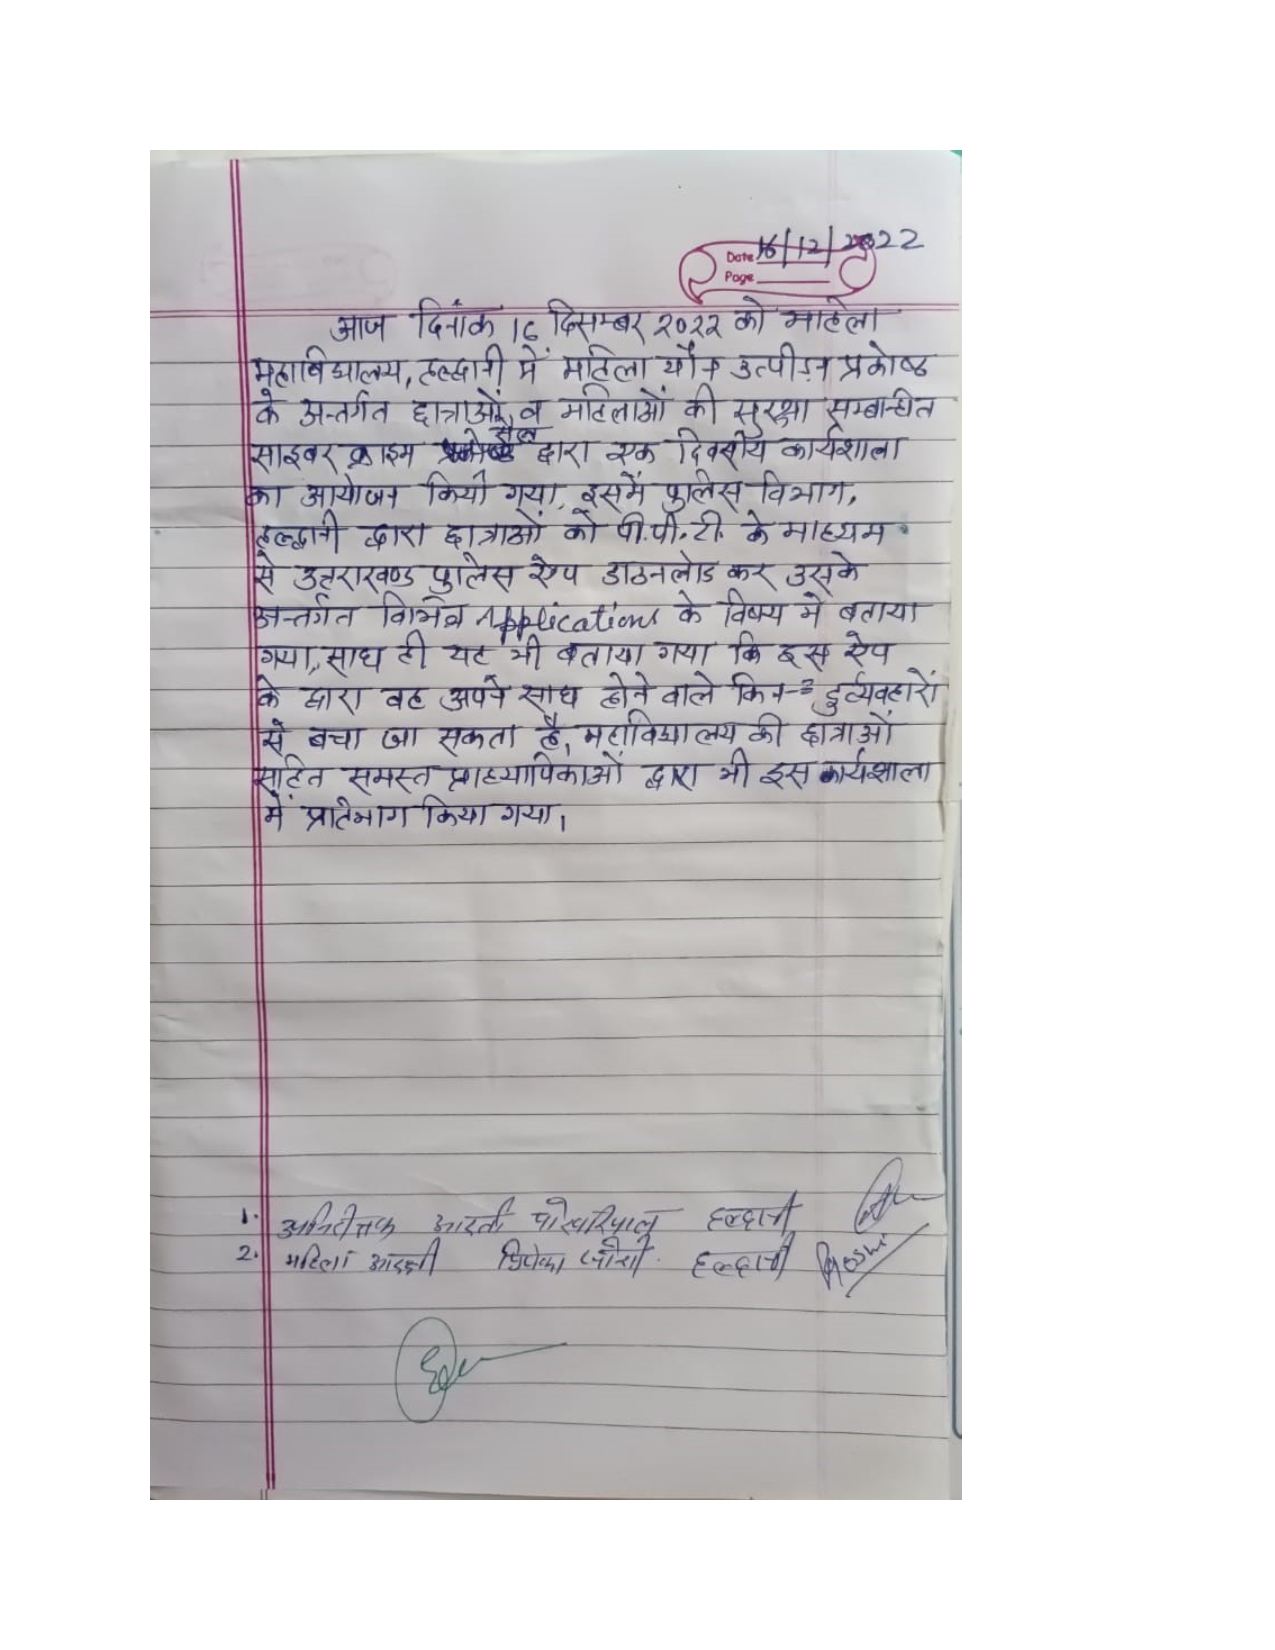 Date 16/12/2022
Page
आज दिनांक 16 दिसम्बर 2022 को महिला
महाविद्यालय, हल्द्वानी में महिला यौन उत्पीड़न प्रकोष्ठ
के अन्तर्गत छात्राओं व महिलाओं की सुरक्षा सम्बन्धित
साइबर क्राइम सैल द्वारा एक दिवसीय कार्यशाला
का आयोजन किया गया, इसमें पुलिस विभाग,
हल्द्वानी द्वारा छात्राओं को पी.पी.टी. के माध्यम
से उत्तराखण्ड पुलिस ऐप डाउनलोड कर उसके
अन्तर्गत विभिन्न Applications के विषय में बताया
गया, साथ ही यह भी बताया गया कि इस ऐप
के द्वारा वह अपने साथ होने वाले किन-२ दुर्व्यवहारों
से बचा जा सकता है, महाविद्यालय की छात्राओं
सहित समस्त प्राध्यापिकाओं द्वारा भी इस कार्यशाला
में प्रतिभाग किया गया।
1. आरती पोखरियाल हल्द्वानी
2. महिला आरक्षी जोशी हल्द्वानी Pjoshi